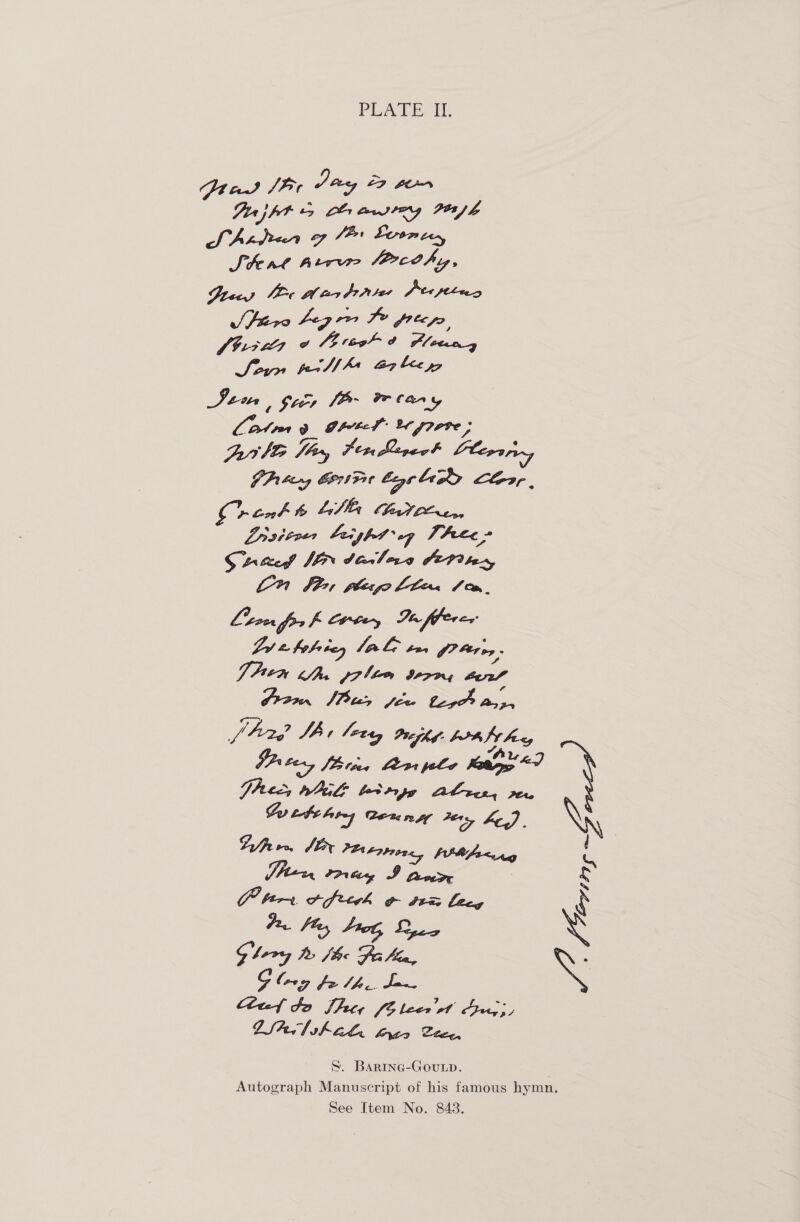 PLATE II.
Now the Day is over
Night is drawing nigh
Shadows of the Evening
Steal across the sky.
Now the darkness
Stars begin to peep,
Birds & Beasts & Flowers
Soon will be asleep
Jesu, give the weary
Calm & Sweet repose;
With Thy tenderest blessing
May our eyelids close.
Grant to little Children
Visions bright of Thee;
Guard the sailors tossing
On the deep blue sea.
Comfort every Sufferer
Watching late in pain;
Those who plan some evil
From their sin restrain
Thro' the long night watches
May Thine Angels spread
Their white wings above me
Watching round my bed.
When the morning wakens
Then may I arise
Pure & fresh & sinless
In Thy holy Eyes
Glory to the Father,
Glory to the Son
And to Thee blest Spirit
Whilst all ages run
S. Baring-Gould
S. BARING-GOULD.
Autograph Manuscript of his famous hymn.
See Item No. 843.